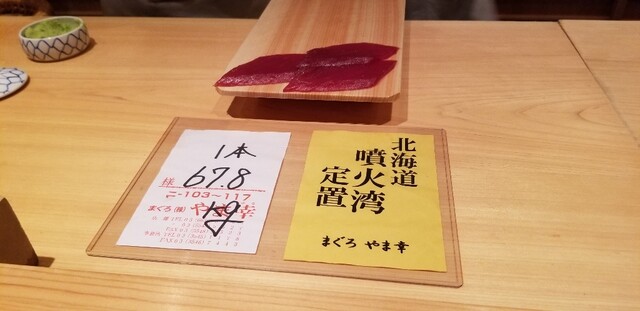 1本
67.8
様
103~117
まぐろ (株) やま幸
北海道
噴火湾
定置
まぐろ やま幸